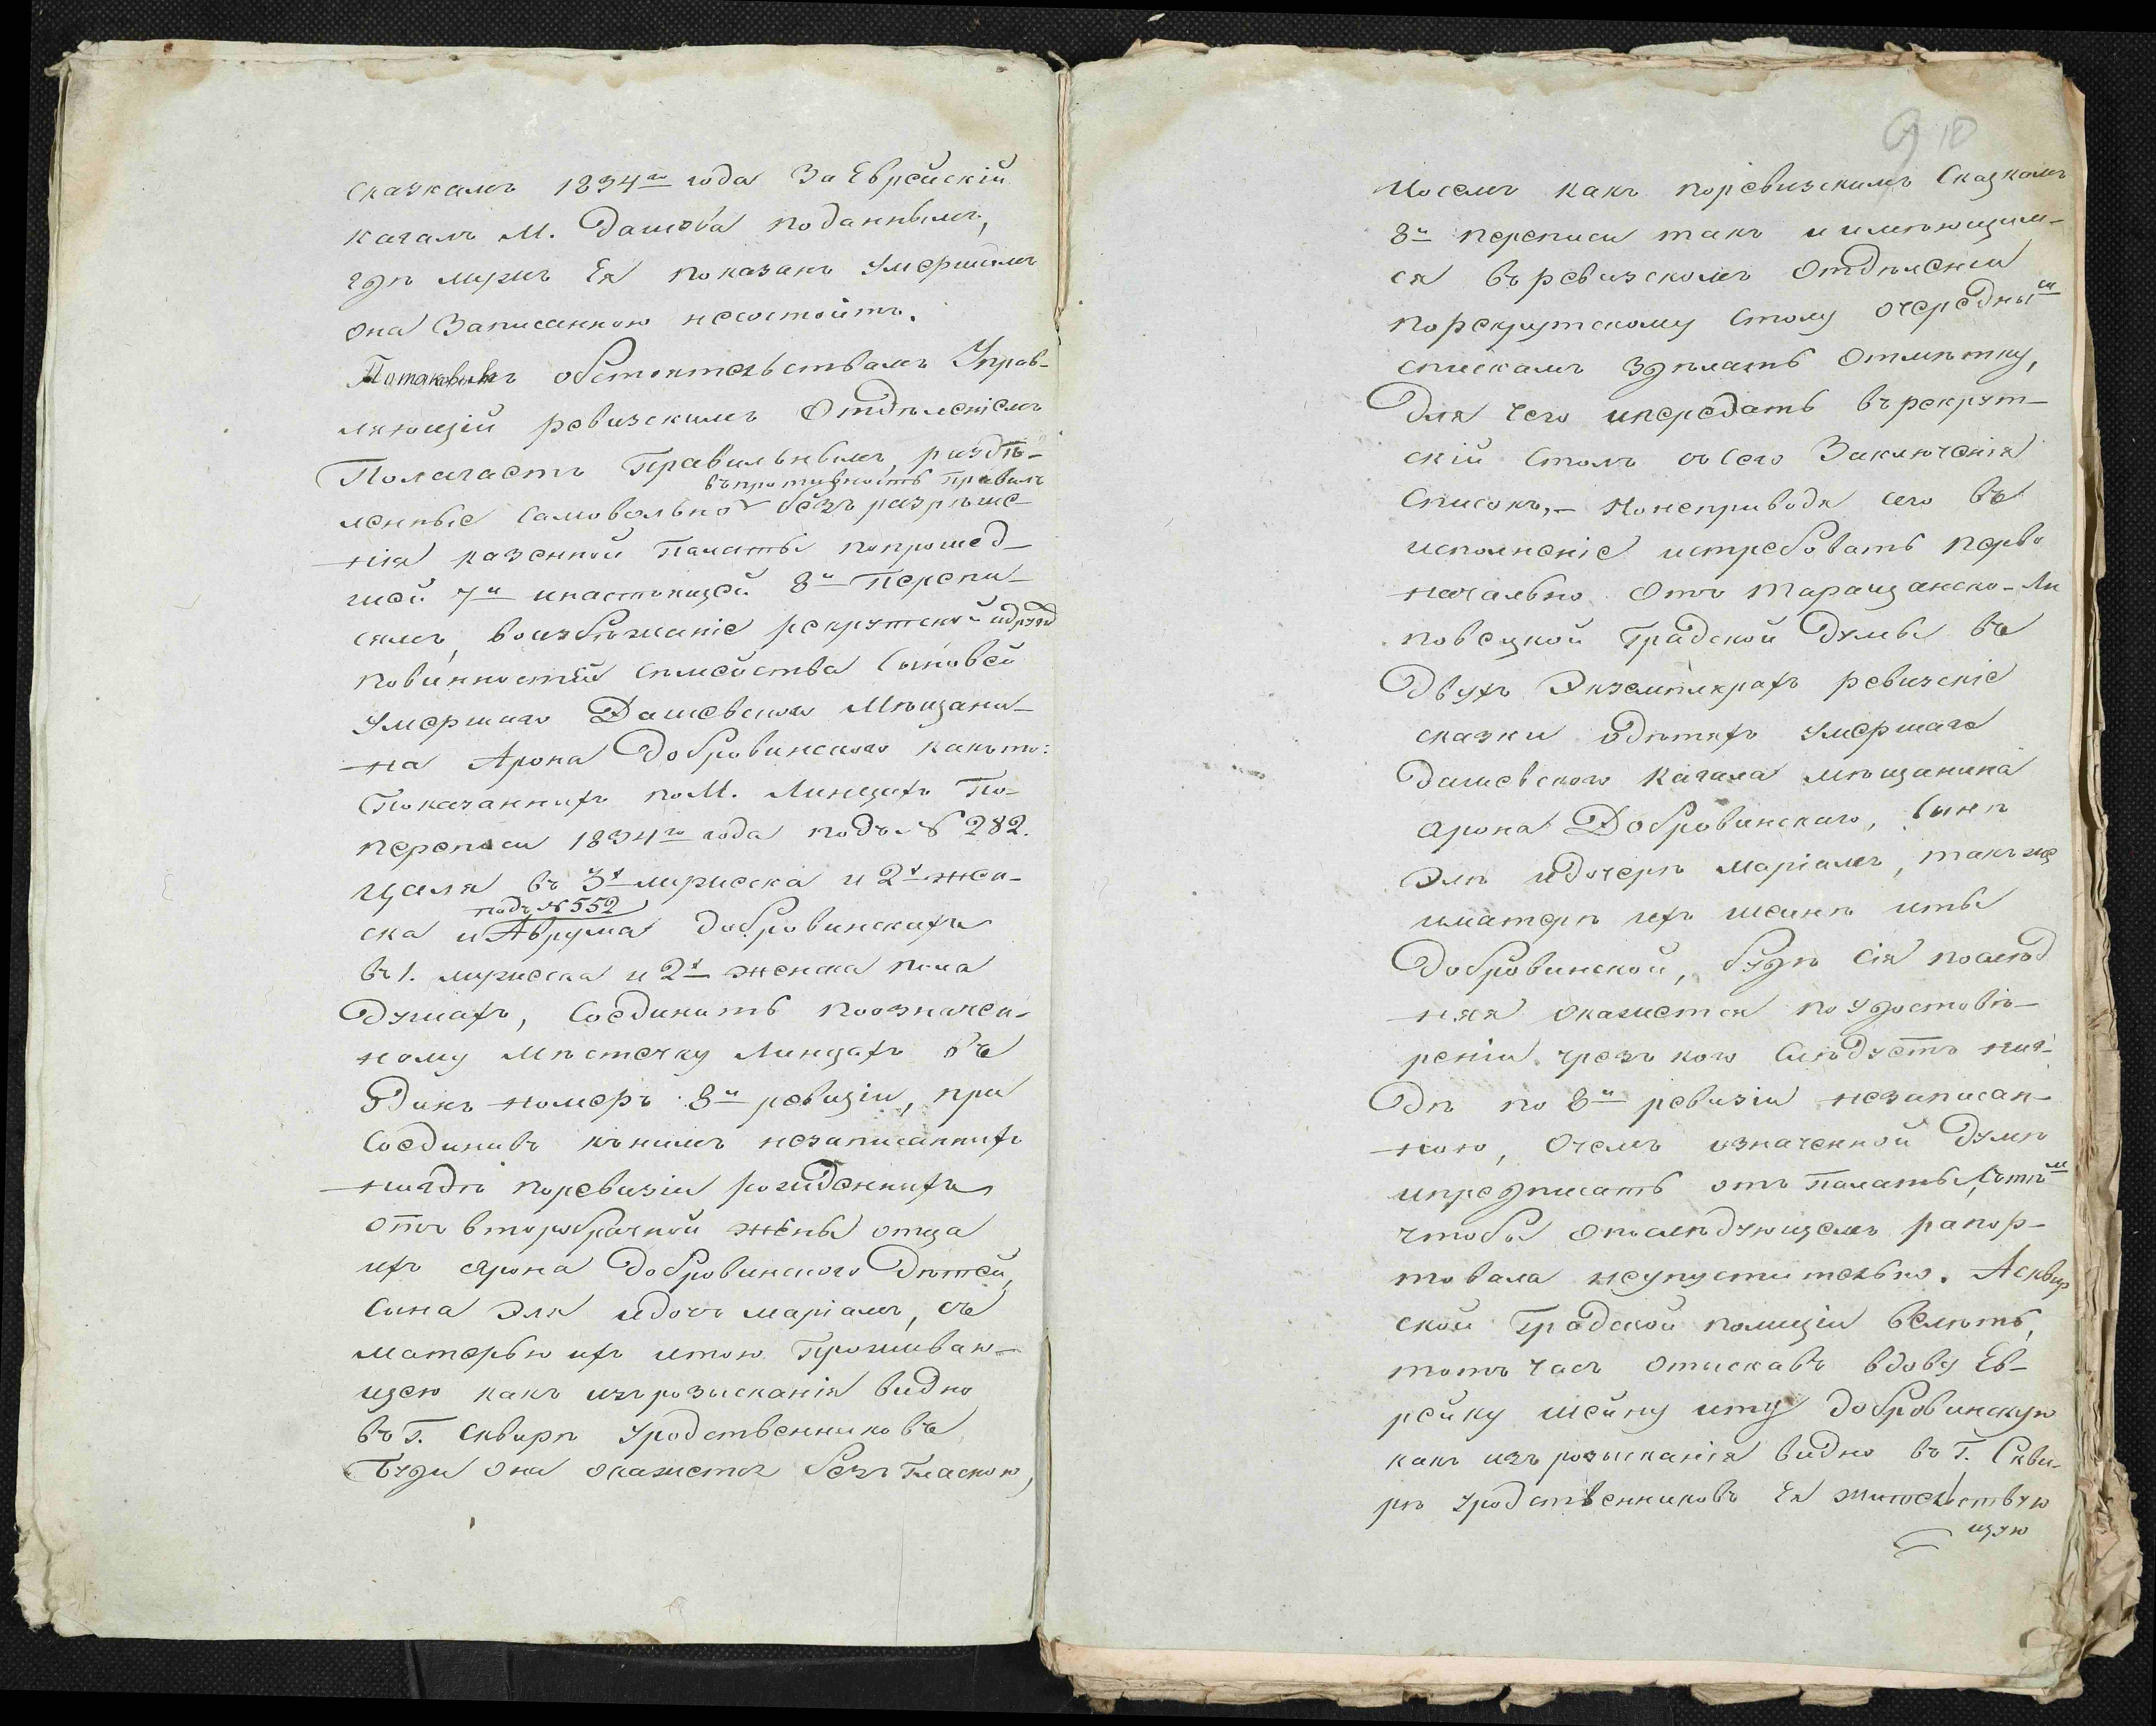 сказкамъ 1834го года За Еврейскій
кагалъ М. Дашева поданнымъ,
гдѣ мужъ Ея показанъ умершимъ
она Записанною несостоитъ.
Потаковымъ обстоятельствамъ Управ-
ляющій ревизскимъ Отдѣленіемъ
Полагаетъ Правильнымъ, раздѣ-
въ противность правилъ
ленные самовольно безъ разрѣше-
нія казенной Палаты попрошед-
шей 7й инастоящей 8й Перепи-
сямъ, воизбѣжаніе рекрутской идруг
повинностей семейства Сыновей
умершаго Дашевского Мѣщани-
на Арона Добровинского какъто:
Показаннихъ поМ. Линцахъ По-
переписи 1834го года подъ № 282.
Цаля въ 3х мужеска и 2х жен-
подъ № 552
ска и Аврума Добровинскихъ
въ 1. мужеска и 2х женска пола
Душахъ, Соединить поозначен-
ному мѣстечку Линцахъ въ
Одинъ номеръ 8й ревизіи, при
Соединивъ кънимъ незаписаннихъ
нигдѣ поревизіи рожденнихъ
отъ второбрачной жены отца
ихъ Арона Добровинского Дѣтей,
Сына Эля идочь маріамъ, съ
матерью ихъ итою Проживаю-
щею какъ изърозысканія видно
въ Г. Сквирѣ уродственниковъ
Буди она окажется безъгласною,
910
Посемъ какъ поревизскимъ Сказкамъ
8й переписи такъ иимѣющим-
ся въревизскомъ Отдѣленіи
порекрутскому Столу очередным
спискамъ Здѣлать Отмѣтку,
Для чего ипередать върекрут-
скій Столъ съсего Заключенія
Списокъ,- Неприводя сего въ
исполненіе истребовать перво
начально Отъ Таращанско-Ли
повецкой Градской Думы въ
Двухъ Экземплярахъ ревизскіе
сказки одѣтяхъ умершаго
Дашевского Кагала мѣщанина
Арона Добровинскаго, Сынѣ
Элѣ идочерѣ маріамъ, такъже
иматерѣ ихъ шейнѣ иты
Добровинской, будѣ сія послѣд
няя окажется поудостовѣ-
реніи чрезъ кого слѣдуетъ ниг-
Дѣ по 8й ревизіи незаписан-
ною, Очемъ означенной Думѣ
ипредписать отъ Палаты, сътѣм
чтобы опослѣдующемъ рапор-
товала неупустительно. Асквир
ской Градской полиціи велѣть,
тотъ часъ Отискавъ вдову Ев-
рейку шейну иту Добровинскую
какъ изъ розысканія видно въ Г. Скви-
рѣ уродственниковъ Ея жительствую
щую